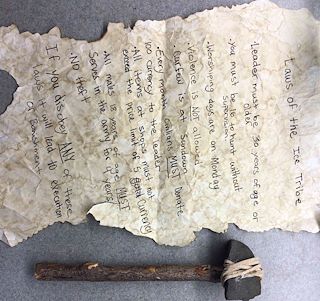 Laws of the Ice Tribe
• Leader must be 30 years of age or
older
• You must be 16 to hunt without
supervision
• Worshiping days are on Monday
• Violence is NOT allowed
• Curfew is at sundown
• Every month, civilians MUST donate
100 currency to the leader
• All items at shops must not
exceed the price limit of 5 currency
• All males 18 years of age MUST
serve in the army for 4 years
• NO theft
If you disobey ANY of these
laws it will lead to execution
or banishment